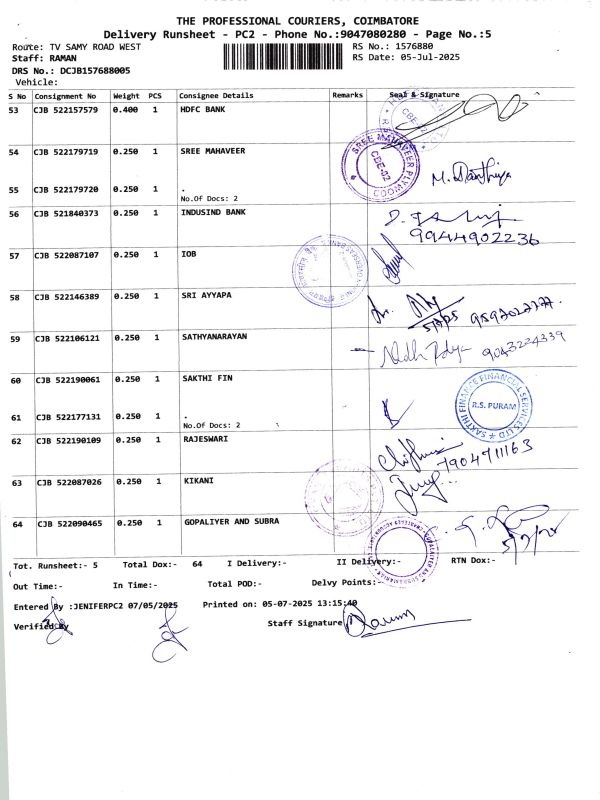 THE PROFESSIONAL COURIERS, COIMBATORE
Delivery Runsheet - PC2 - Phone No.:9047080280 - Page No.:5
Route: TV SAMY ROAD WEST
RS No.: 1576880
Staff: RAMAN
RS Date: 05-Jul-2025
DRS No.: DCJB157688005
Vehicle:
S No Consignment No Weight PCS Consignee Details Remarks Seal & Signature
53 CJB 522157579 0.400 1 HDFC BANK
CBE-02
54 CJB 522179719 0.250 1 SREE MAHAVEER
SREE MAHAVEER PLY
CBE-02
55 CJB 522179720 0.250 1 .
No.Of Docs: 2
56 CJB 521840373 0.250 1 INDUSIND BANK
9944902236
57 CJB 522087107 0.250 1 IOB
58 CJB 522146389 0.250 1 SRI AYYAPA
59 CJB 522106121 0.250 1 SATHYANARAYAN
9043224339
60 CJB 522190061 0.250 1 SAKTHI FIN
SAKTHI FINANCE FINANCIAL SERVICES LTD
R.S. PURAM
61 CJB 522177131 0.250 1 .
No.Of Docs: 2
62 CJB 522190109 0.250 1 RAJESWARI
7904711163
63 CJB 522087026 0.250 1 KIKANI
64 CJB 522090465 0.250 1 GOPALIYER AND SUBRA
Tot. Runsheet:- 5 Total Dox:- 64 I Delivery:- II Delivery:- RTN Dox:-
Out Time:- In Time:- Total POD:- Delvy Points:-
Entered By :JENIFERPC2 07/05/2025 Printed on: 05-07-2025 13:15:40
Verified By Staff Signature